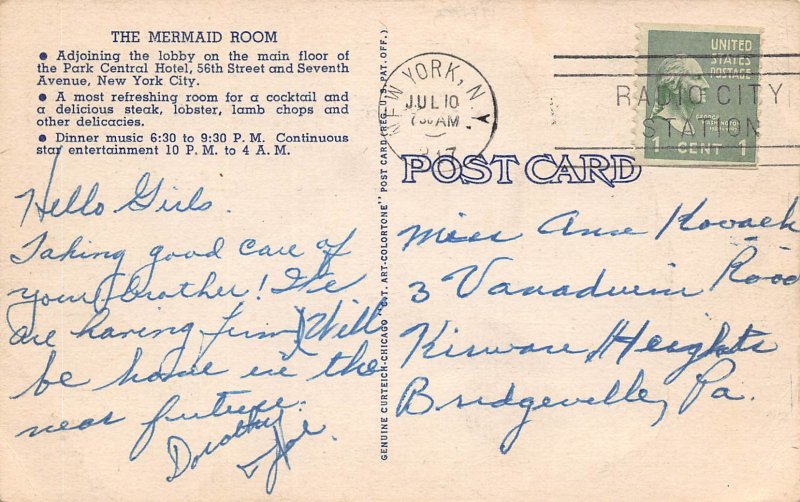 THE MERMAID ROOM
● Adjoining the lobby on the main floor of
the Park Central Hotel, 56th Street and Seventh
Avenue, New York City.
● A most refreshing room for a cocktail and
a delicious steak, lobster, lamb chops and
other delicacies.
● Dinner music 6:30 to 9:30 P. M. Continuous
star entertainment 10 P. M. to 4 A. M.
Hello Girls.
Taking good care of
your brother! We
are having fun, Will
be home in the
near future.
Dorothy
& Joe.
GENUINE CURTEICH-CHICAGO "C.T. ART-COLORTONE" POST CARD (REG. U.S. PAT. OFF.)
NEW YORK, N.Y.
JUL 10
AM
RADIO CITY
STATION
UNITED
STATES
POSTAGE
GEORGE
WASHINGTON
1 CENT 1
POST CARD
Miss Anne Kovach
3 Vanadium Road
Kirwan Heights
Bridgeville, Pa.